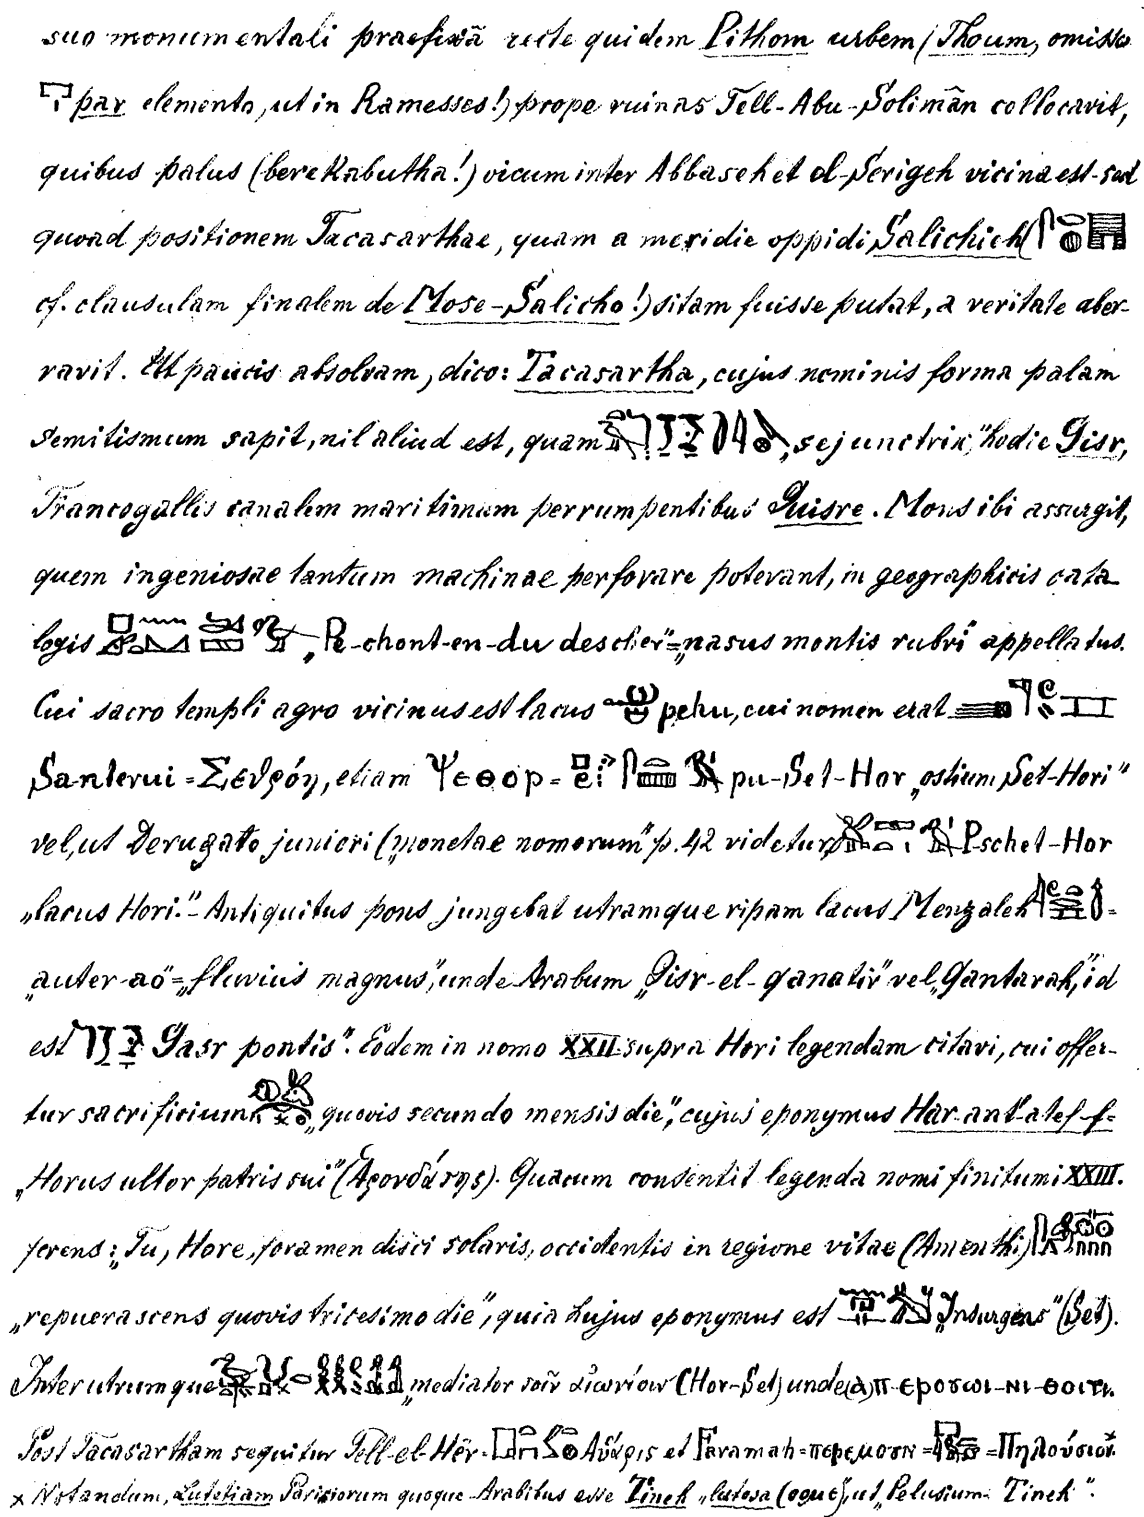 suo monumentali praefixā recte quidem Pithom urbem (Thoum, omisso
par elemento, ut in Ramesses!) prope ruinas Tell-Abu-Solimān collocavit,
quibus palus (berekabutha!) vicum inter Abbaseh et el-Serigeh vicina est - sed
quoad positionem Tacasarthae, quam a meridie oppidi Salichieh (
cf. clausulam finalem de Mose-Salicho!) sitam fuisse putat, a veritate aber-
ravit. Ut paucis absolvam, dico: Tacasartha, cujus nominis forma palam
Semitismum sapit, nil aliud est, quam „sejunctrix," hodie Gisr,
Francogallis canalem maritimum perrumpentibus Guisre. Mons ibi assurgit,
quem ingeniosae tantum machinae perforare poterant, in geographicis cata-
logis „Pe-chont-en-du descher"=„nasus montis rubri" appellatus.
Cui sacro templi agro vicinus est lacus pehu, cui nomen erat
Santerui = Σεθρόη, etiam Ψεθορ = pu-Set-Hor „ostium Set-Hori"
vel, ut Derugato juniori („monetae nomorum" p. 42 videtur, Pschet-Hor
„lacus Hori." - Antiquitus pons jungebat utramque ripam lacus Menzaleh =
„auter-aō"=„fluvius magnus", unde Arabum „Gisr-el-qanatir" vel „Qantarah," id
est Gasr pontis". Eodem in nomo XXII supra Hori legendam citavi, cui offer-
tur sacrificium „quovis secundo mensis die", cujus eponymus Har-ant-atef-f=
„Horus ultor patris sui" (Ἁρονδάτης). Quacum consentit legenda nomi finitumi XXIII.
ferens: „Tu, Hore, foramen disci solaris, occidentis in regione vitae (Amenthi)
„repuerascens quovis tricesimo die", quia hujus eponymus est „Insurgens" (Set).
Inter utrumque „mediator τοῖν αἰωνίοιν (Hor-Set) unde
Post Tacasartham sequitur Tell-el-Hēr = Αὔαρις et Faramah = περεμουν = = Πηλούσιον.
x Notandum, Lutetiam Parisiorum quoque Arabibus esse Tineh „lutosa", ut „Pelusium Tineh".